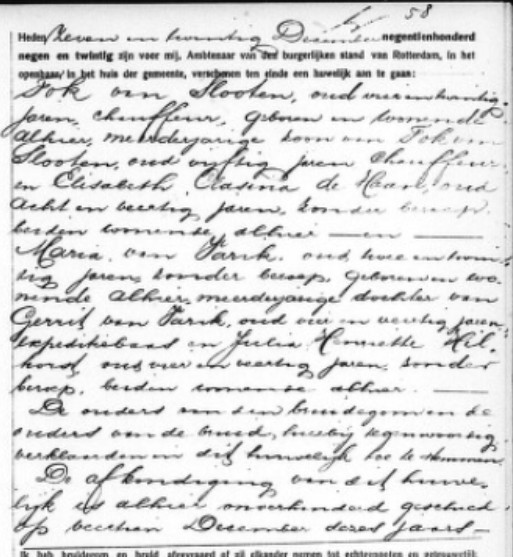 58
Heden zeven en twintig December negentienhonderd
negen en twintig zijn voor mij, Ambtenaar van den burgerlijken stand van Rotterdam, in het
openbaar in het huis der gemeente, verschenen ten einde een huwelijk aan te gaan:
Fok van Slooten, oud vier en twintig
jaren, chauffeur, geboren en wonende
alhier, meerderjarige zoon van Fok van
Slooten, oud vijftig jaren chauffeur
en Elisabeth Clasina de Haan, oud
acht en veertig jaren, zonder beroep,
beiden wonende alhier en
Maria van Varik, oud twee en twin-
tig jaren, zonder beroep, geboren en wo-
nende alhier, meerderjarige dochter van
Gerrit van Varik, oud vier en veertig jaren,
expeditiebaas en Julia Henriette Hil-
horst, oud vier en veertig jaren, zonder
beroep, beiden wonende alhier.
De ouders van den bruidegom en de
ouders van de bruid, hierbij tegenwoordig,
verklaarden in dit huwelijk toe te stemmen.
De afkondiging van dit huwe-
lijk is alhier onverhinderd geschied
op veertien December dezes jaars
Ik heb bruidegom en bruid afgevraagd of zij elkander nemen tot echtgenooten en getrouwelijk